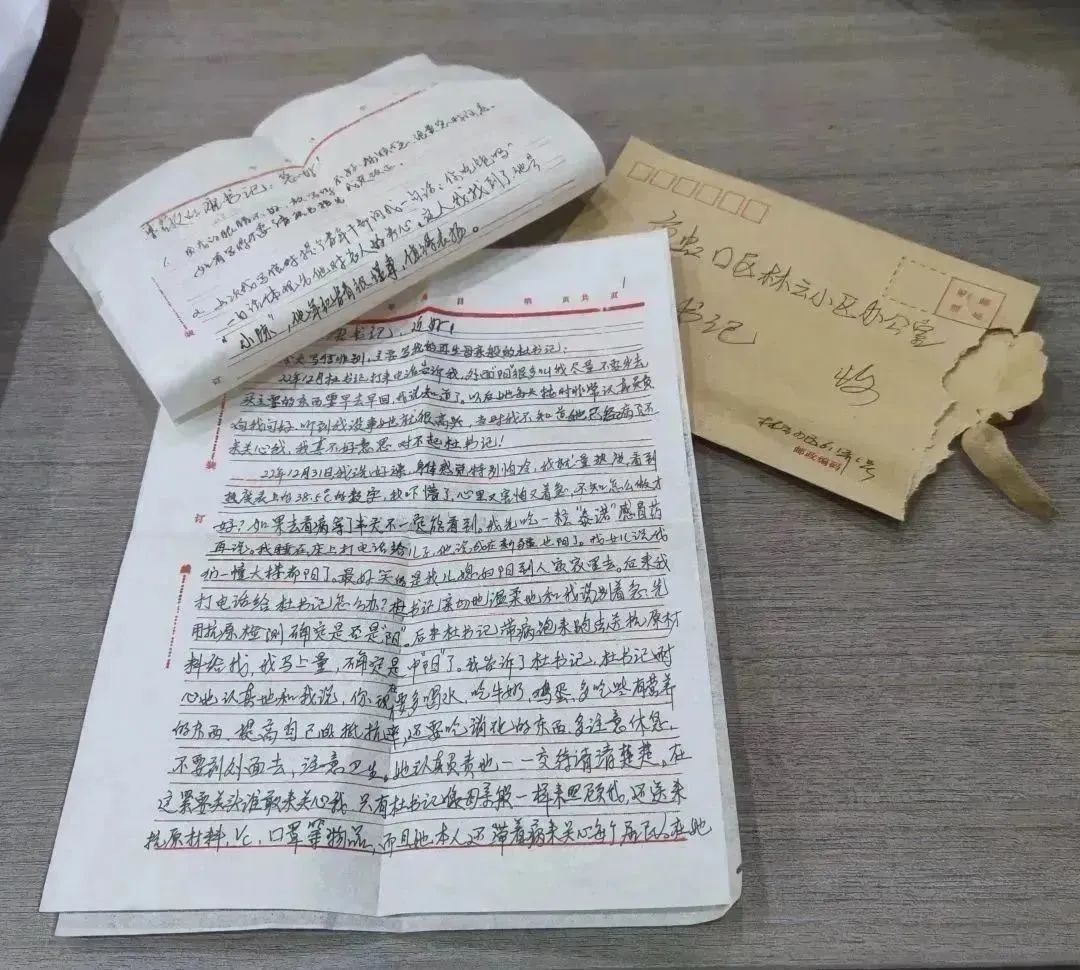 书记、您好!
上次我写信时提
一句话体现出他对老人的关心、
"小陈",他年轻有为很道事,值得表扬。
虹口区林云小区办公室
书记
收
邮政编码
1
书记、近好!
今天写信特别,主要写我的再生母亲般的杜书记:
22年12月杜书记打来电话告诉我,外面"阳"很多叫我尽量不要出去
买主要的东西要早去早回,我说知道了。以后她每天按时非常认真负责
向我问好,听到我没事她就很高兴,当时我不知道她已经病了还
来关心我,我真不好意思对不起杜书记!
22年12月31日我洗好澡,身体感觉特别怕冷,我就量热度,看到
热度表上的38.5℃的数字,我吓懵了,心里又害怕又着急,不知怎么做才
好?如果去看病等了半天不一定能看到,我先吃一粒"泰诺"感冒药
再说。我睡在床上打电话给儿子,他说我在新疆也阳了。我女儿说我
们一幢大楼都阳了。最好笑的是我儿媳的阳到人家家里去。后来我
打电话给杜书记怎么办?杜书记亲切地温柔地和我说别着急先
用抗原检测确定是否是"阳"。后来杜书记带病跑来跑去送抗原材
料给我,我马上量,确定是中"阳"了。我告诉了杜书记,杜书记耐
心地认真地和我说,你现在要多喝水,吃牛奶,鸡蛋,多吃些有营养
的东西,提高自己的抵抗率,还要吃消化的东西,多注意休息,
不要到外面去,注意卫生。她认真负责地一一交待清清楚楚。在
这紧要关头谁敢来关心我,只有杜书记像母亲般一样来照顾我,还送来
抗原材料,Vc,口罩等物品,而且她本人还带着病来关心每个居民,在她